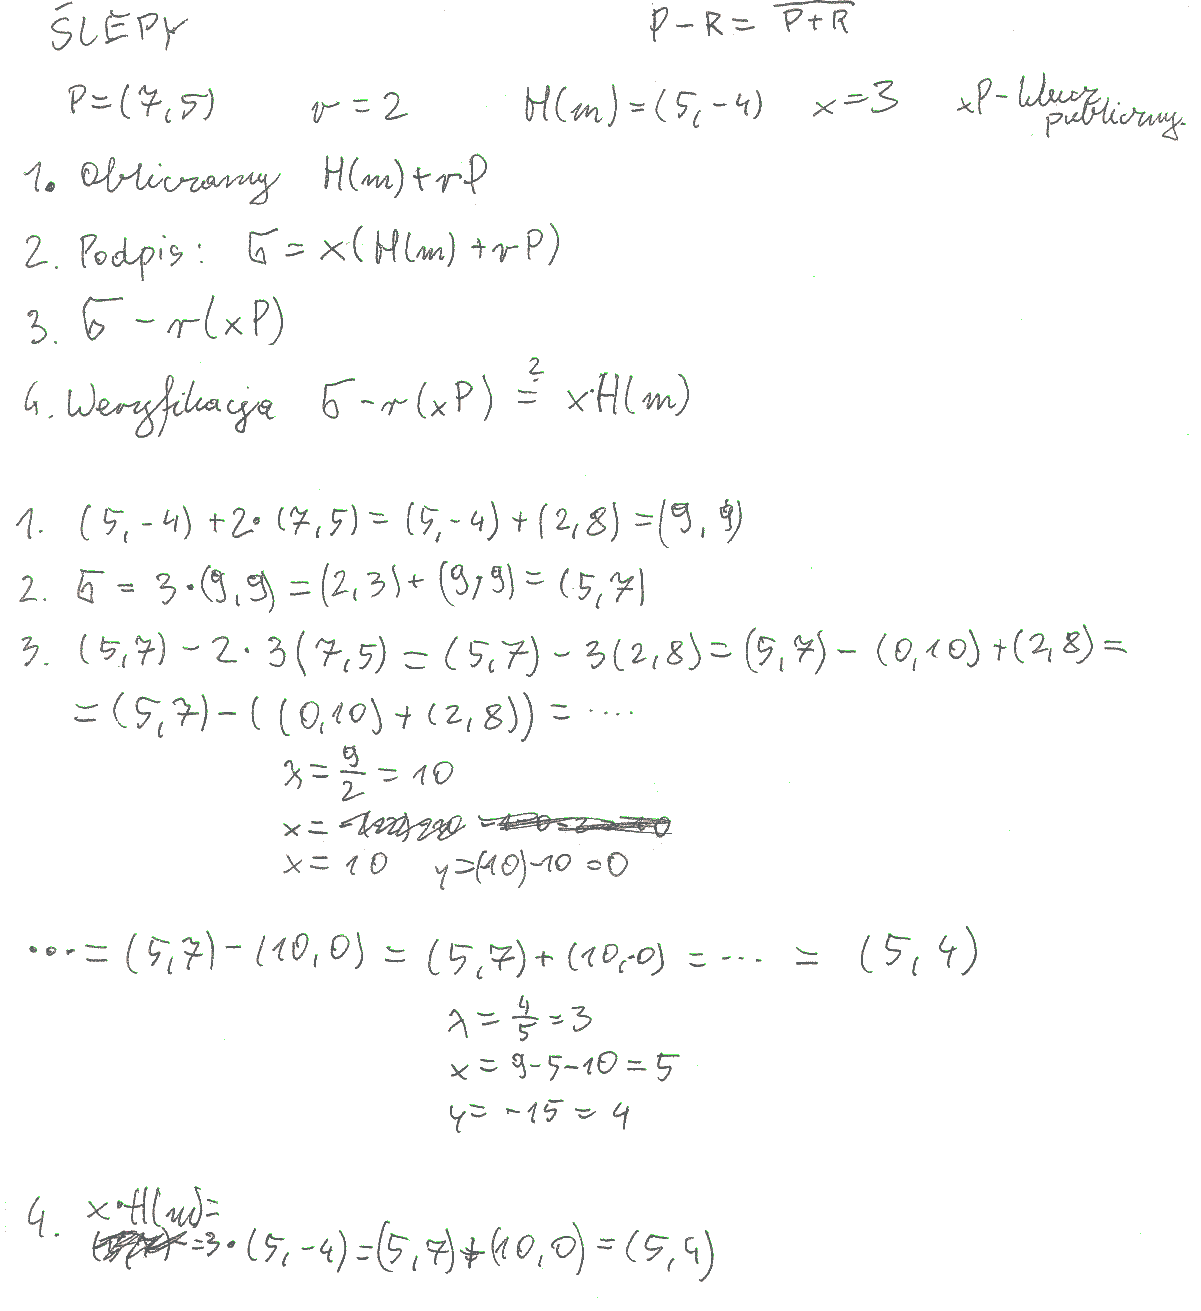 ŚLEPY
P-R = P+R
P=(7,5) r=2 H(m)=(5,-4) x=3 xP-klucz publiczny.
1. Obliczamy H(m)+rP
2. Podpis: σ = x(H(m)+rP)
3. σ - r(xP)
4. Weryfikacja σ-r(xP) ≟ x·H(m)
1. (5,-4)+2·(7,5)=(5,-4)+(2,8)=(9,9)
2. σ = 3·(9,9)=(2,3)+(9,9)=(5,7)
3. (5,7)-2·3(7,5)=(5,7)-3(2,8)=(5,7)-(0,10)+(2,8)=
=(5,7)-((0,10)+(2,8))=....
λ=9/2=10
x=
x=10 y=(10)-10=0
...=(5,7)-(10,0)=(5,7)+(10,-0)=...=(5,4)
λ=4/5=3
x=9-5-10=5
y=-15=4
4. x·H(m)=
=3·(5,-4)=(5,7)+(10,0)=(5,4)